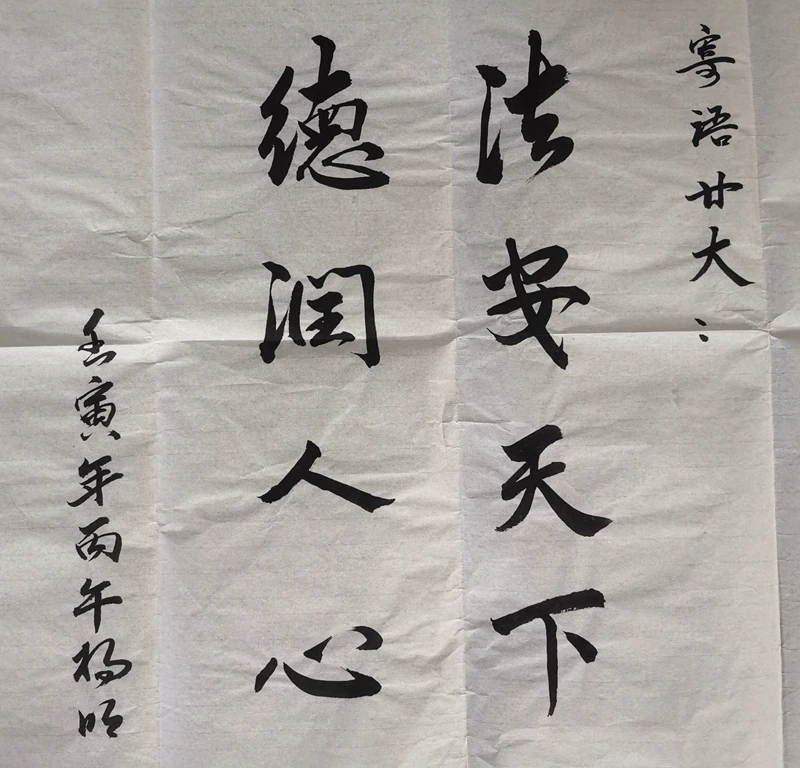 寄语廿大：
法安天下
德润人心
壬寅年丙午杨明